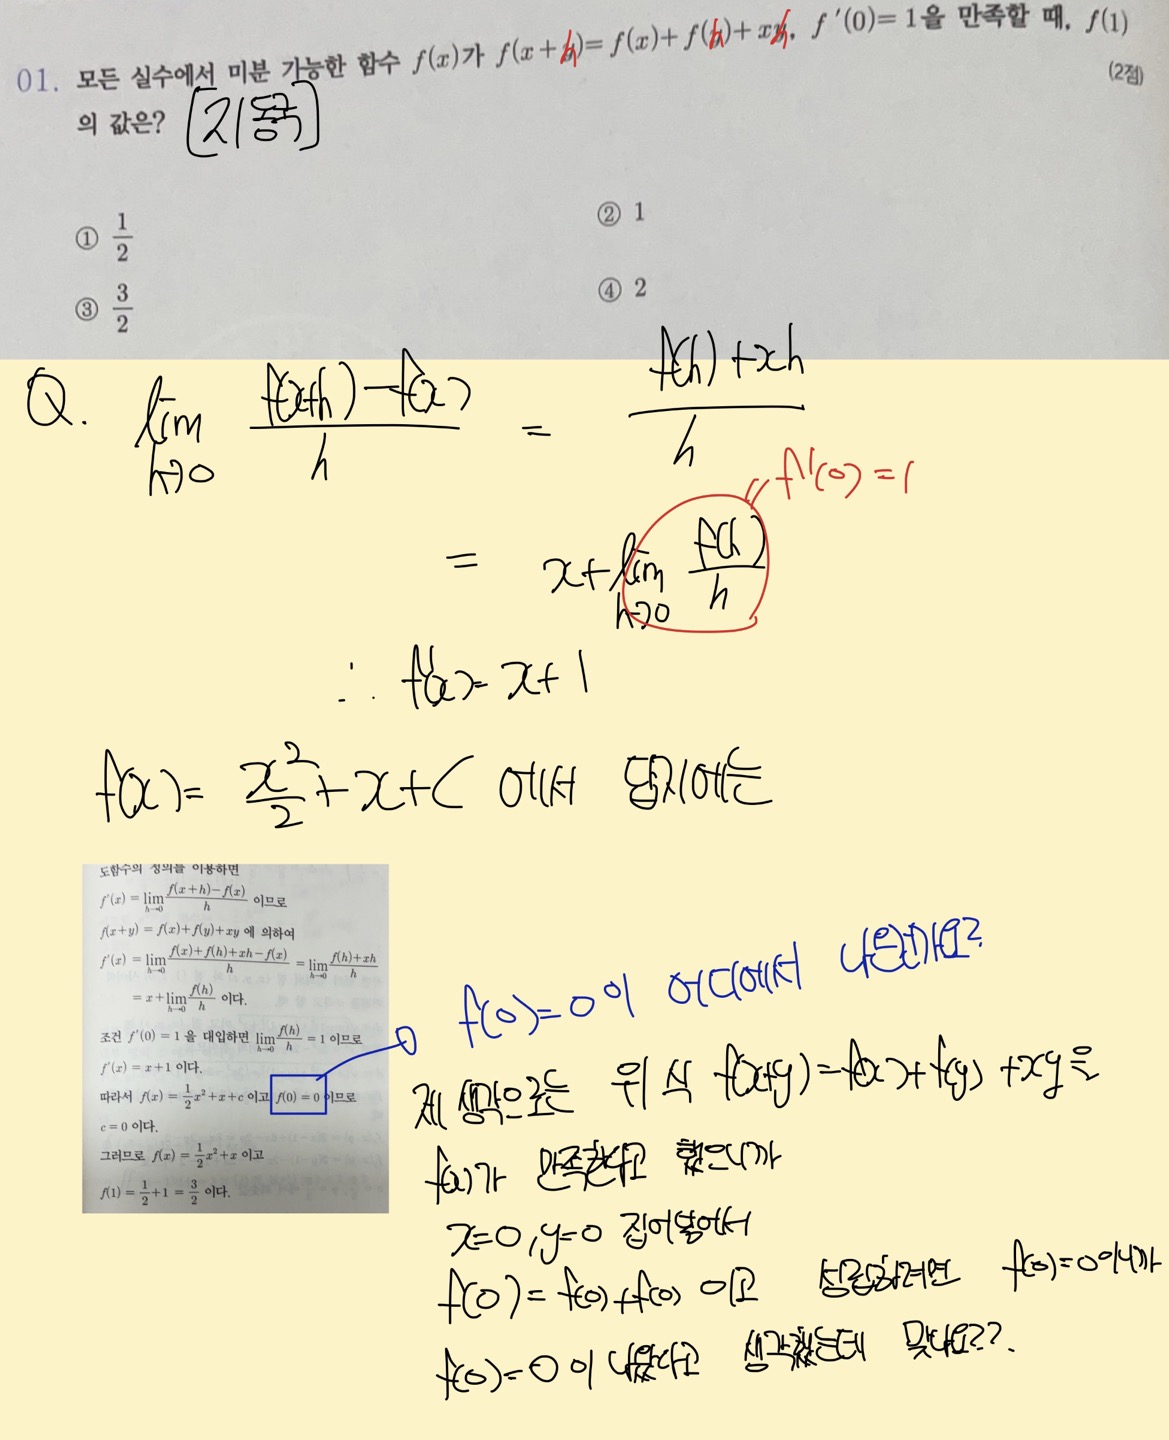 01. 모든 실수에서 미분 가능한 함수 f(x)가 f(x+h)=f(x)+f(h)+xh, f'(0)=1을 만족할 때, f(1)
의 값은? [기동국]
(2점)
① 1/2
② 1
③ 3/2
④ 2
Q. lim h→0 (f(x+h)-f(x))/h = (f(h)+xh)/h
= x+lim h→0 f(h)/h = f'(0)=1
∴ f'(x)=x+1
f(x)= x²/2+x+C 에서 답지에는
도함수의 정의를 이용하면
f'(x)=lim h→0 (f(x+h)-f(x))/h 이므로
f(x+y)=f(x)+f(y)+xy 에 의하여
f'(x)=lim h→0 (f(x)+f(h)+xh-f(x))/h = lim h→0 (f(h)+xh)/h
=x+lim h→0 f(h)/h 이다.
조건 f'(0)=1 을 대입하면 lim h→0 f(h)/h =1 이므로
f'(x)=x+1 이다.
따라서 f(x)=1/2x²+x+c 이고 f(0)=0 이므로
c=0 이다.
그러므로 f(x)=1/2x²+x 이고
f(1)=1/2+1=3/2 이다.
f(0)=0이 어디에서 나온건가요?
제 생각으로는 위 식 f(x+y)=f(x)+f(y)+xy을
f(x)가 만족한다고 했으니까
x=0, y=0 집어넣어서
f(0)=f(0)+f(0) 이고 성립하려면 f(0)=0이니까
f(0)=0이 나왔다고 생각했는데 맞나요??.